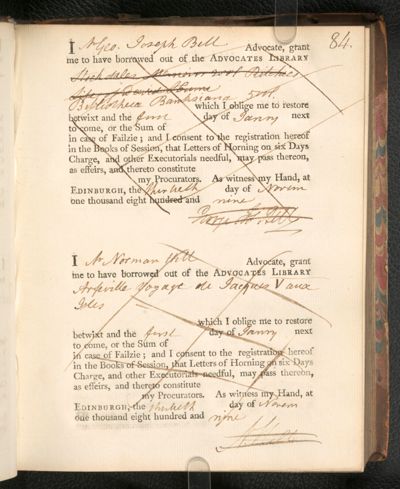 84.
I Mr Geo. Joseph Bell Advocate, grant
me to have borrowed out of the ADVOCATES LIBRARY
Stockdales 2 vol Ritchies
Life of David Hume
Bibliotheca Banksiana 5 vol.
which I oblige me to restore
betwixt and the first day of Janry next
to come, or the Sum of
in case of Failzie; and I consent to the registration hereof
in the Books of Session, that Letters of Horning on six Days
Charge, and other Executorials needful, may pass thereon,
as effeirs, and thereto constitute
my Procurators. As witness my Hand, at
EDINBURGH, the thirtieth day of Novem
one thousand eight hundred and nine
Bell
I Mr Norman Hill Advocate, grant
me to have borrowed out of the ADVOCATES LIBRARY
Voyage de Jacques
which I oblige me to restore
betwixt and the first day of Janry next
to come, or the Sum of
in case of Failzie; and I consent to the registration hereof
in the Books of Session, that Letters of Horning on six Days
Charge, and other Executorials needful, may pass thereon,
as effeirs, and thereto constitute
my Procurators. As witness my Hand, at
EDINBURGH, the thirtieth day of Novem
one thousand eight hundred and nine